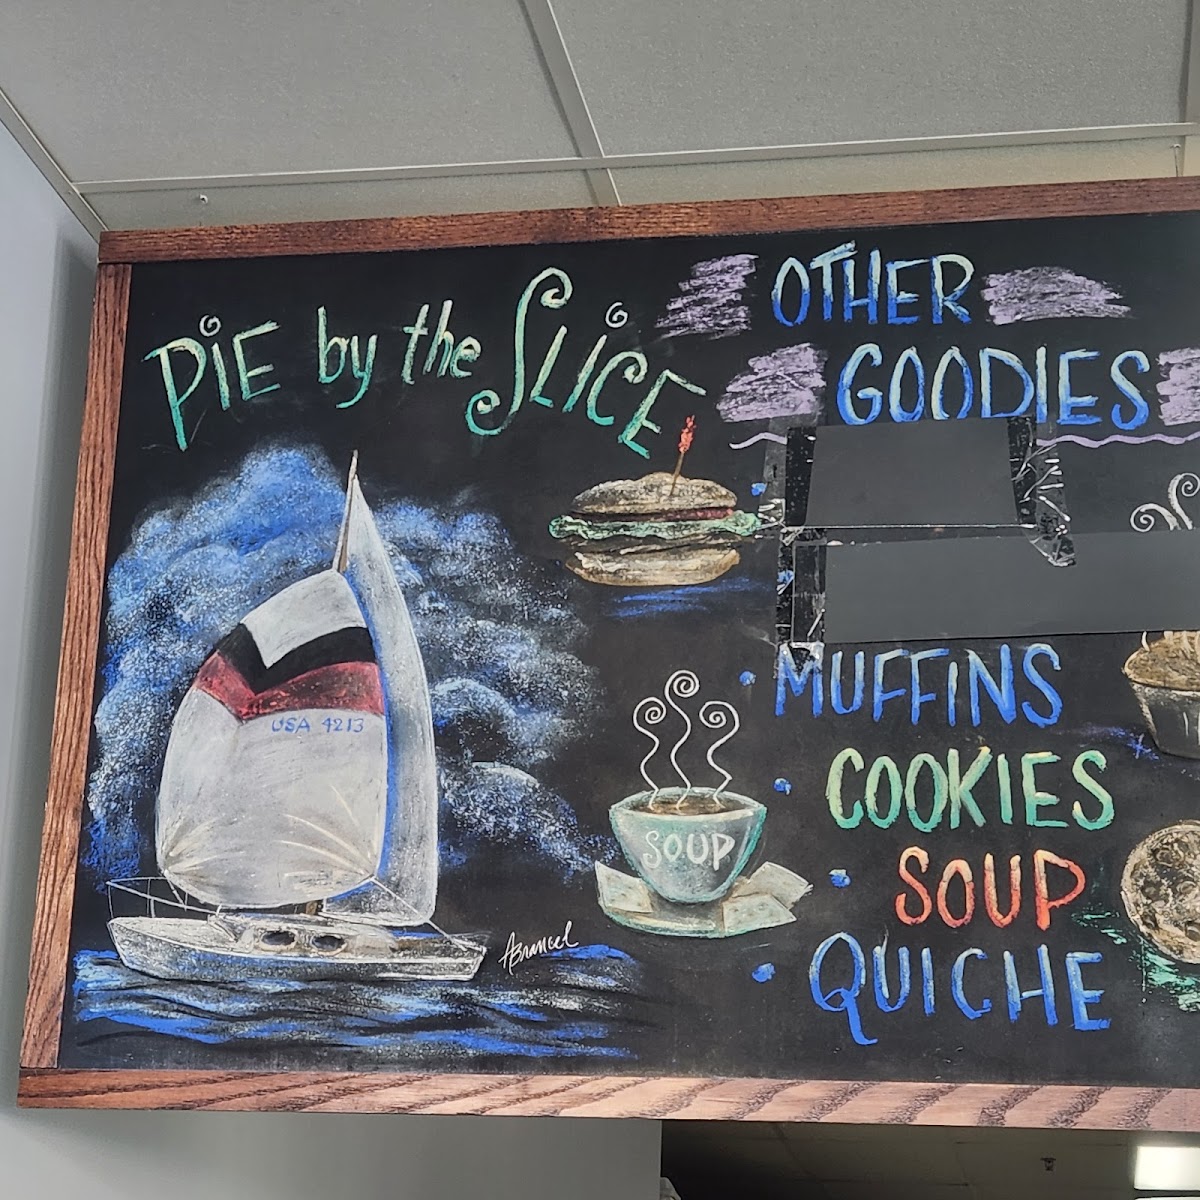 PiE by the SLiCE
OTHER
GOODIES
USA 4213
SOUP
MUFFINS
COOKIES
SOUP
QUICHE